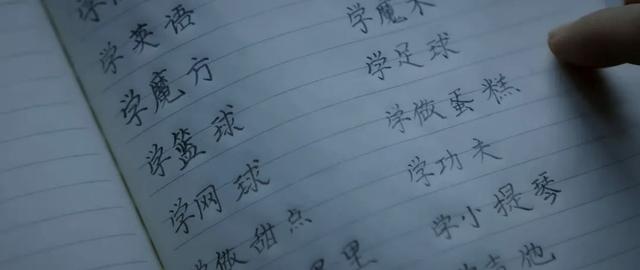 学英语
学魔方
学篮球
学网球
学做甜点
学魔术
学足球
学做蛋糕
学功夫
学小提琴
吉他